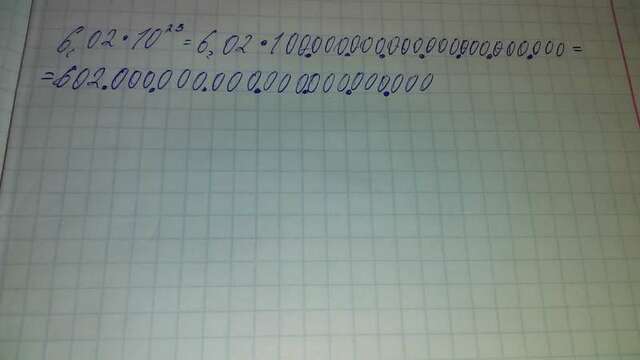 6,02•10²³=6,02•100.000.000.000.000.000.000.000=
=602.000.000.000.000.000.000.000